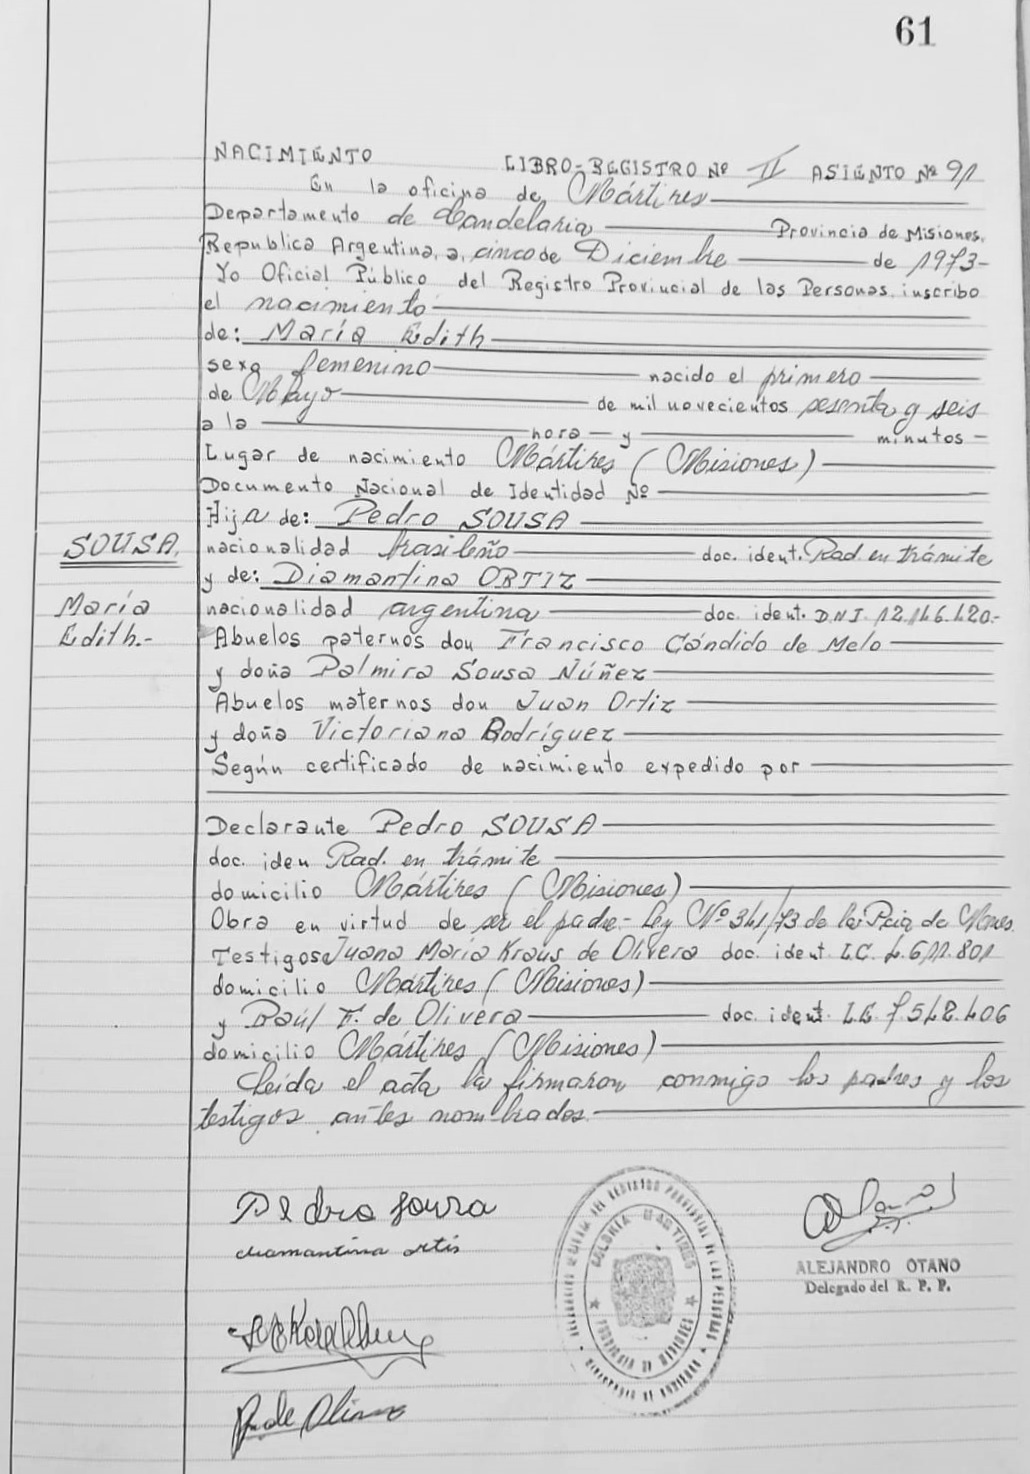 61
NACIMIENTO LIBRO-REGISTRO Nº II ASIENTO Nº 91
En la oficina de Mártires
Departamento de Candelaria Provincia de Misiones,
Republica Argentina, a, cinco de Diciembre de 1973-
Yo Oficial Público del Registro Provincial de las Personas, inscribo
el nacimiento
de: María Edith
sexo femenino nacido el primero
de Mayo de mil novecientos sesenta y seis
a la hora y minutos
Lugar de nacimiento Mártires (Misiones)
Documento Nacional de Identidad Nº
Hija de: Pedro SOUSA
SOUSA, nacionalidad brasileño doc. ident. Rad. en trámite
y de: Diamantina ORTIZ
María nacionalidad argentina doc. ident. D.N.I. 12.146.420.-
Edith.- Abuelos paternos don Francisco Cándido de Melo
y doña Palmira Sousa Núñez
Abuelos maternos don Juan Ortiz
y doña Victoriana Rodríguez
Según certificado de nacimiento expedido por
Declarante Pedro SOUSA
doc. iden Rad. en trámite
domicilio Mártires (Misiones)
Obra en virtud de ser el padre- Ley Nº 341/73 de la Pcia de Mnes.
Testigos Juana María Kraus de Olivera doc. ident. L.C. 4.611.801
domicilio Mártires (Misiones)
y Raúl F. de Olivera doc. ident. L.E. 7.542.406
domicilio Mártires (Misiones)
Leída el acta la firmaron conmigo los padres y los
testigos antes nombrados.
Pedro Sousa
diamantina ortis
COLONIA MARTIRES
PROVINCIA DE MISIONES
ALEJANDRO OTANO
Delegado del R. P. P.